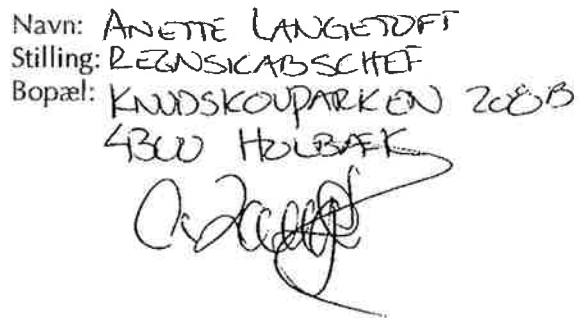 Navn: ANETTE LANGETOFT
Stilling: REGNSKABSCHEF
Bopæl: KNUDSKOVPARKEN 208B
4300 HOLBÆK